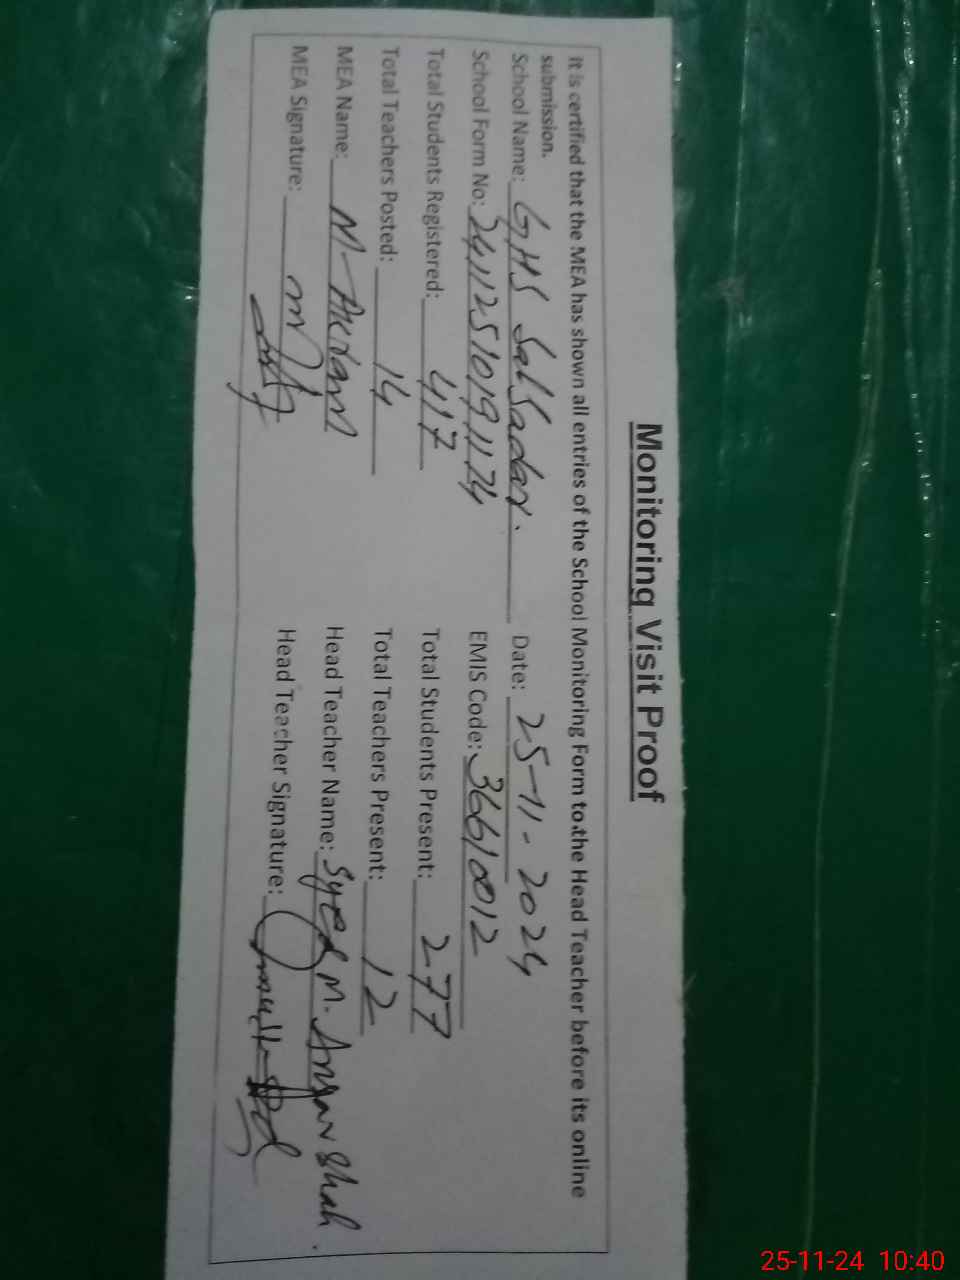 Monitoring Visit Proof
It is certified that the MEA has shown all entries of the School Monitoring Form to the Head Teacher before its online
submission.
School Name: GHS Sal Sadar. Date: 25-11-2024
School Form No: 241125101911174 EMIS Code: 36610012
Total Students Registered: 417 Total Students Present: 277
Total Teachers Posted: 14 Total Teachers Present: 12
MEA Name: M- Akram Head Teacher Name: Syed M. Ansar Shah.
MEA Signature: Head Teacher Signature:
25-11-24 10:40